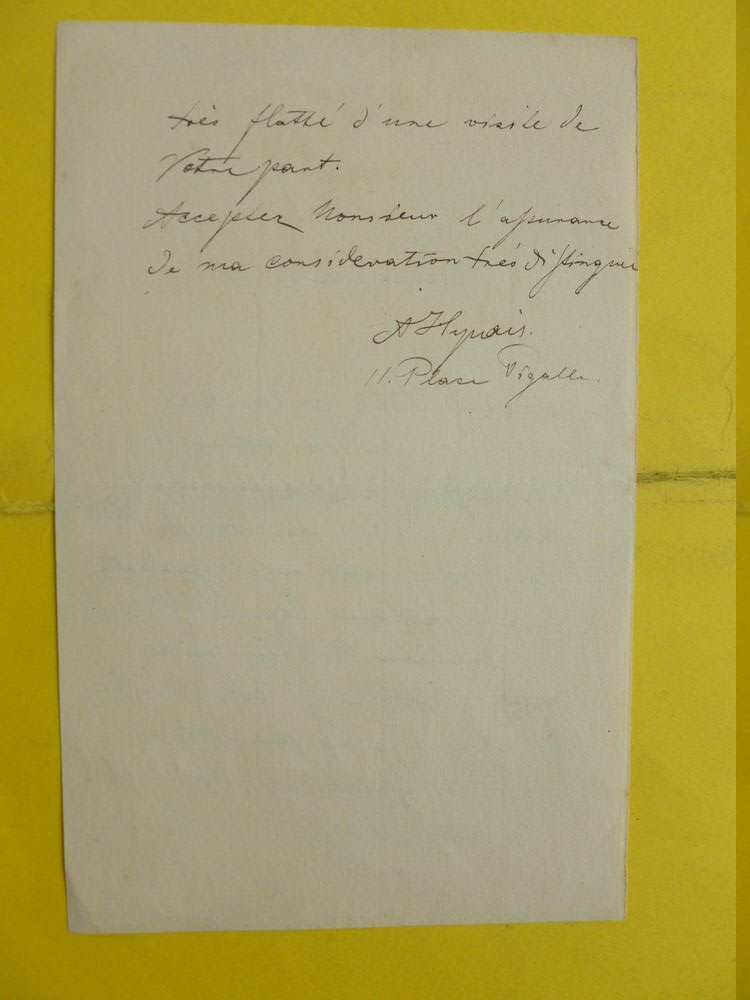 très flatté d'une visite de
Votre part.
Accepter Monsieur l'assurance
de ma consideration très distinguée
A Hynais.
11. Place Pigalle.